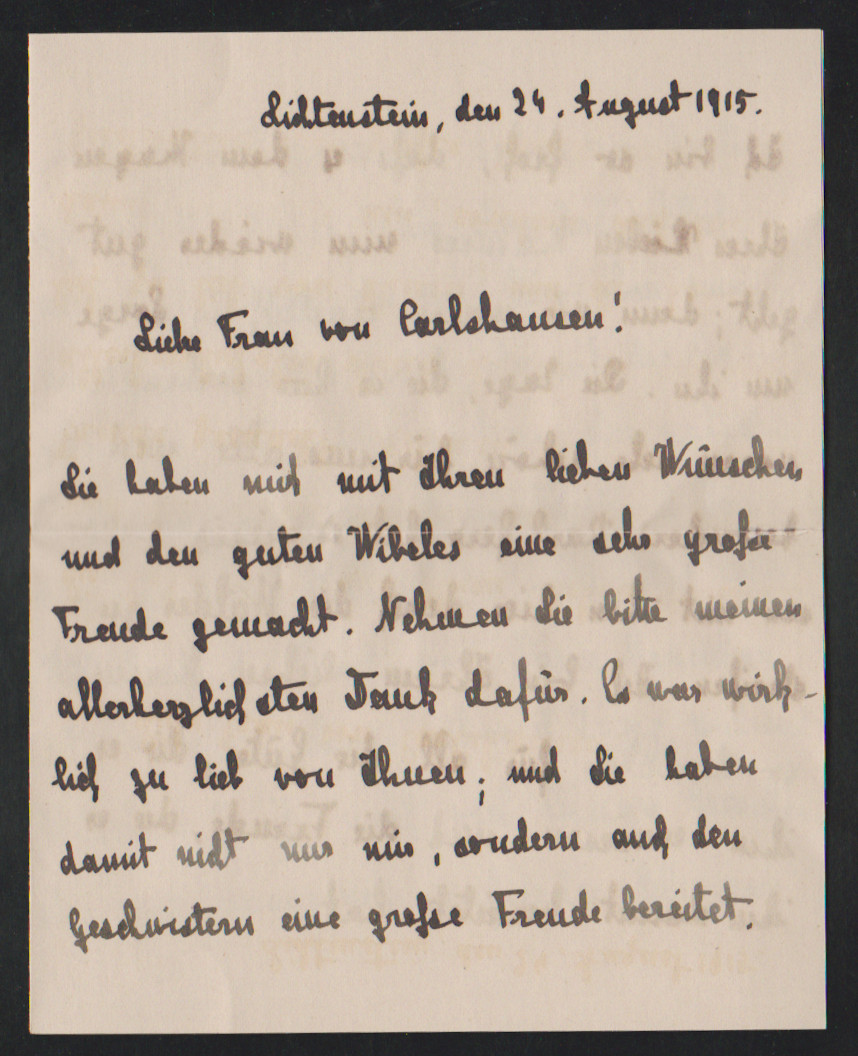 Lichtenstein, den 24. August 1915.
Liebe Frau von Carlshausen!
Sie haben mich mit Ihren lieben Wünschen
und den guten Wibeles eine sehr große
Freude gemacht. Nehmen Sie bitte meinen
allerherzlichsten Dank dafür. Es war wirk-
lich zu lieb von Ihnen; und Sie haben
damit nicht nur mir, sondern auch den
Geschwistern eine große Freude bereitet.